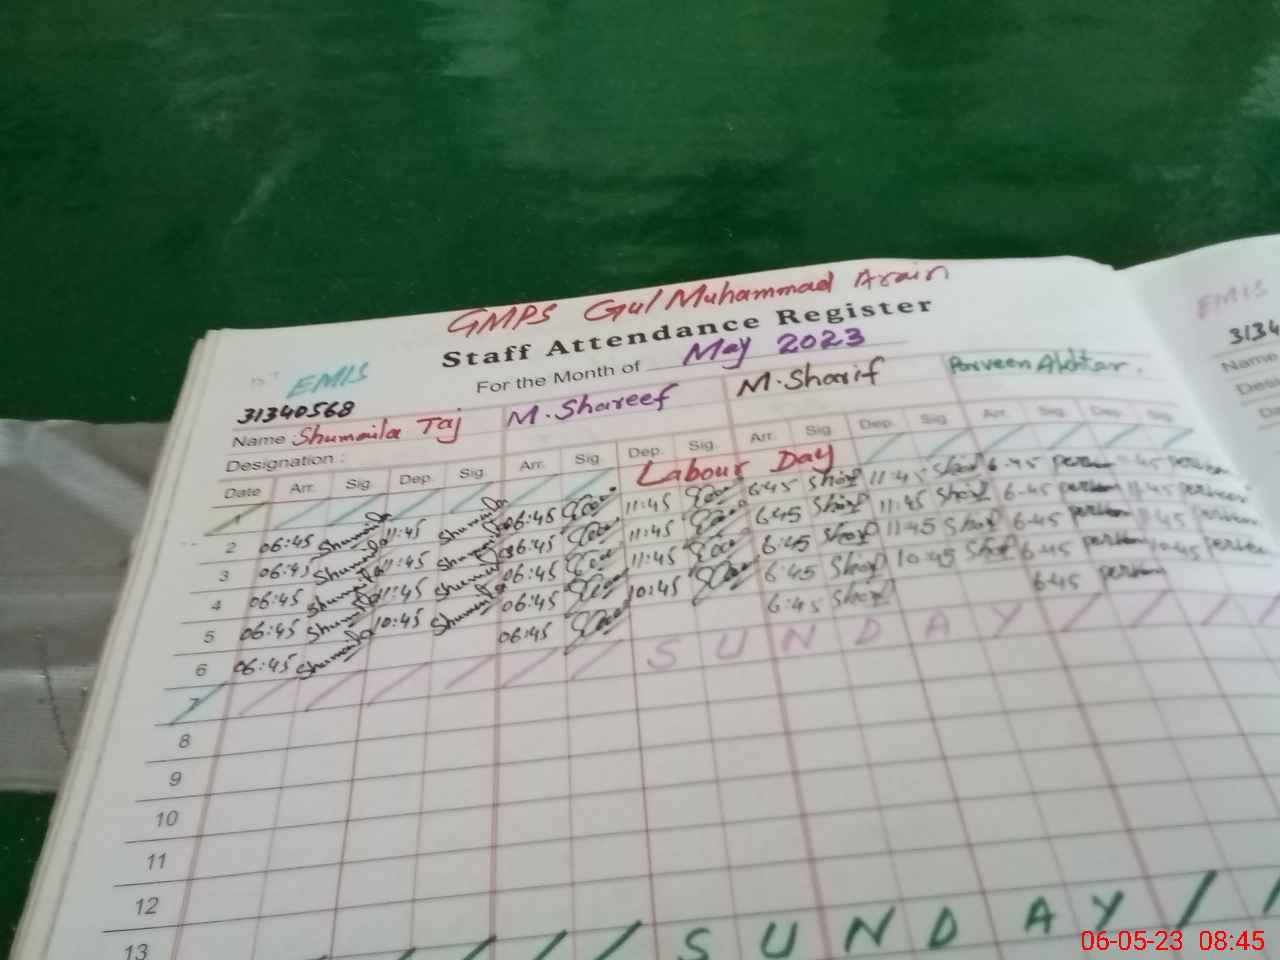 GMPS Gul Muhammad Arain
Staff Attendance Register
For the Month of May 2023
EMIS
31340568
Name Shumaila Taj M. Shareef M. Sharif Parveen Akhtar.
Designation :
Date Arr. Sig. Dep. Sig. Arr. Sig. Dep. Sig. Arr. Sig. Dep. Sig. Arr. Sig. Dep. Sig.
1 Labour Day
2 06:45 Shumaila 11:45 Shumaila 06:45 11:45 6:45 Sharif 11:45 Sharif 6-45 perveen 11-45 perveen
3 06:45 Shumaila 11:45 Shumaila 06:45 11:45 6:45 Sharif 11:45 Sharif 6-45 perveen 11-45 perveen
4 06:45 Shumaila 11:45 Shumaila 06:45 11:45 6:45 Sharif 11:45 Sharif 6-45 perveen 11-45 perveen
5 06:45 Shumaila 10:45 Shumaila 06:45 10:45 6:45 Sharif 10:45 Sharif 6-45 perveen 10-45 perveen
6 06:45 Shumaila 06:45 6:45 Sharif 6-45 perveen
7 SUNDAY
8
9
10
11
12
13
SUNDAY
EMIS
3134
Name
06-05-23 08:45